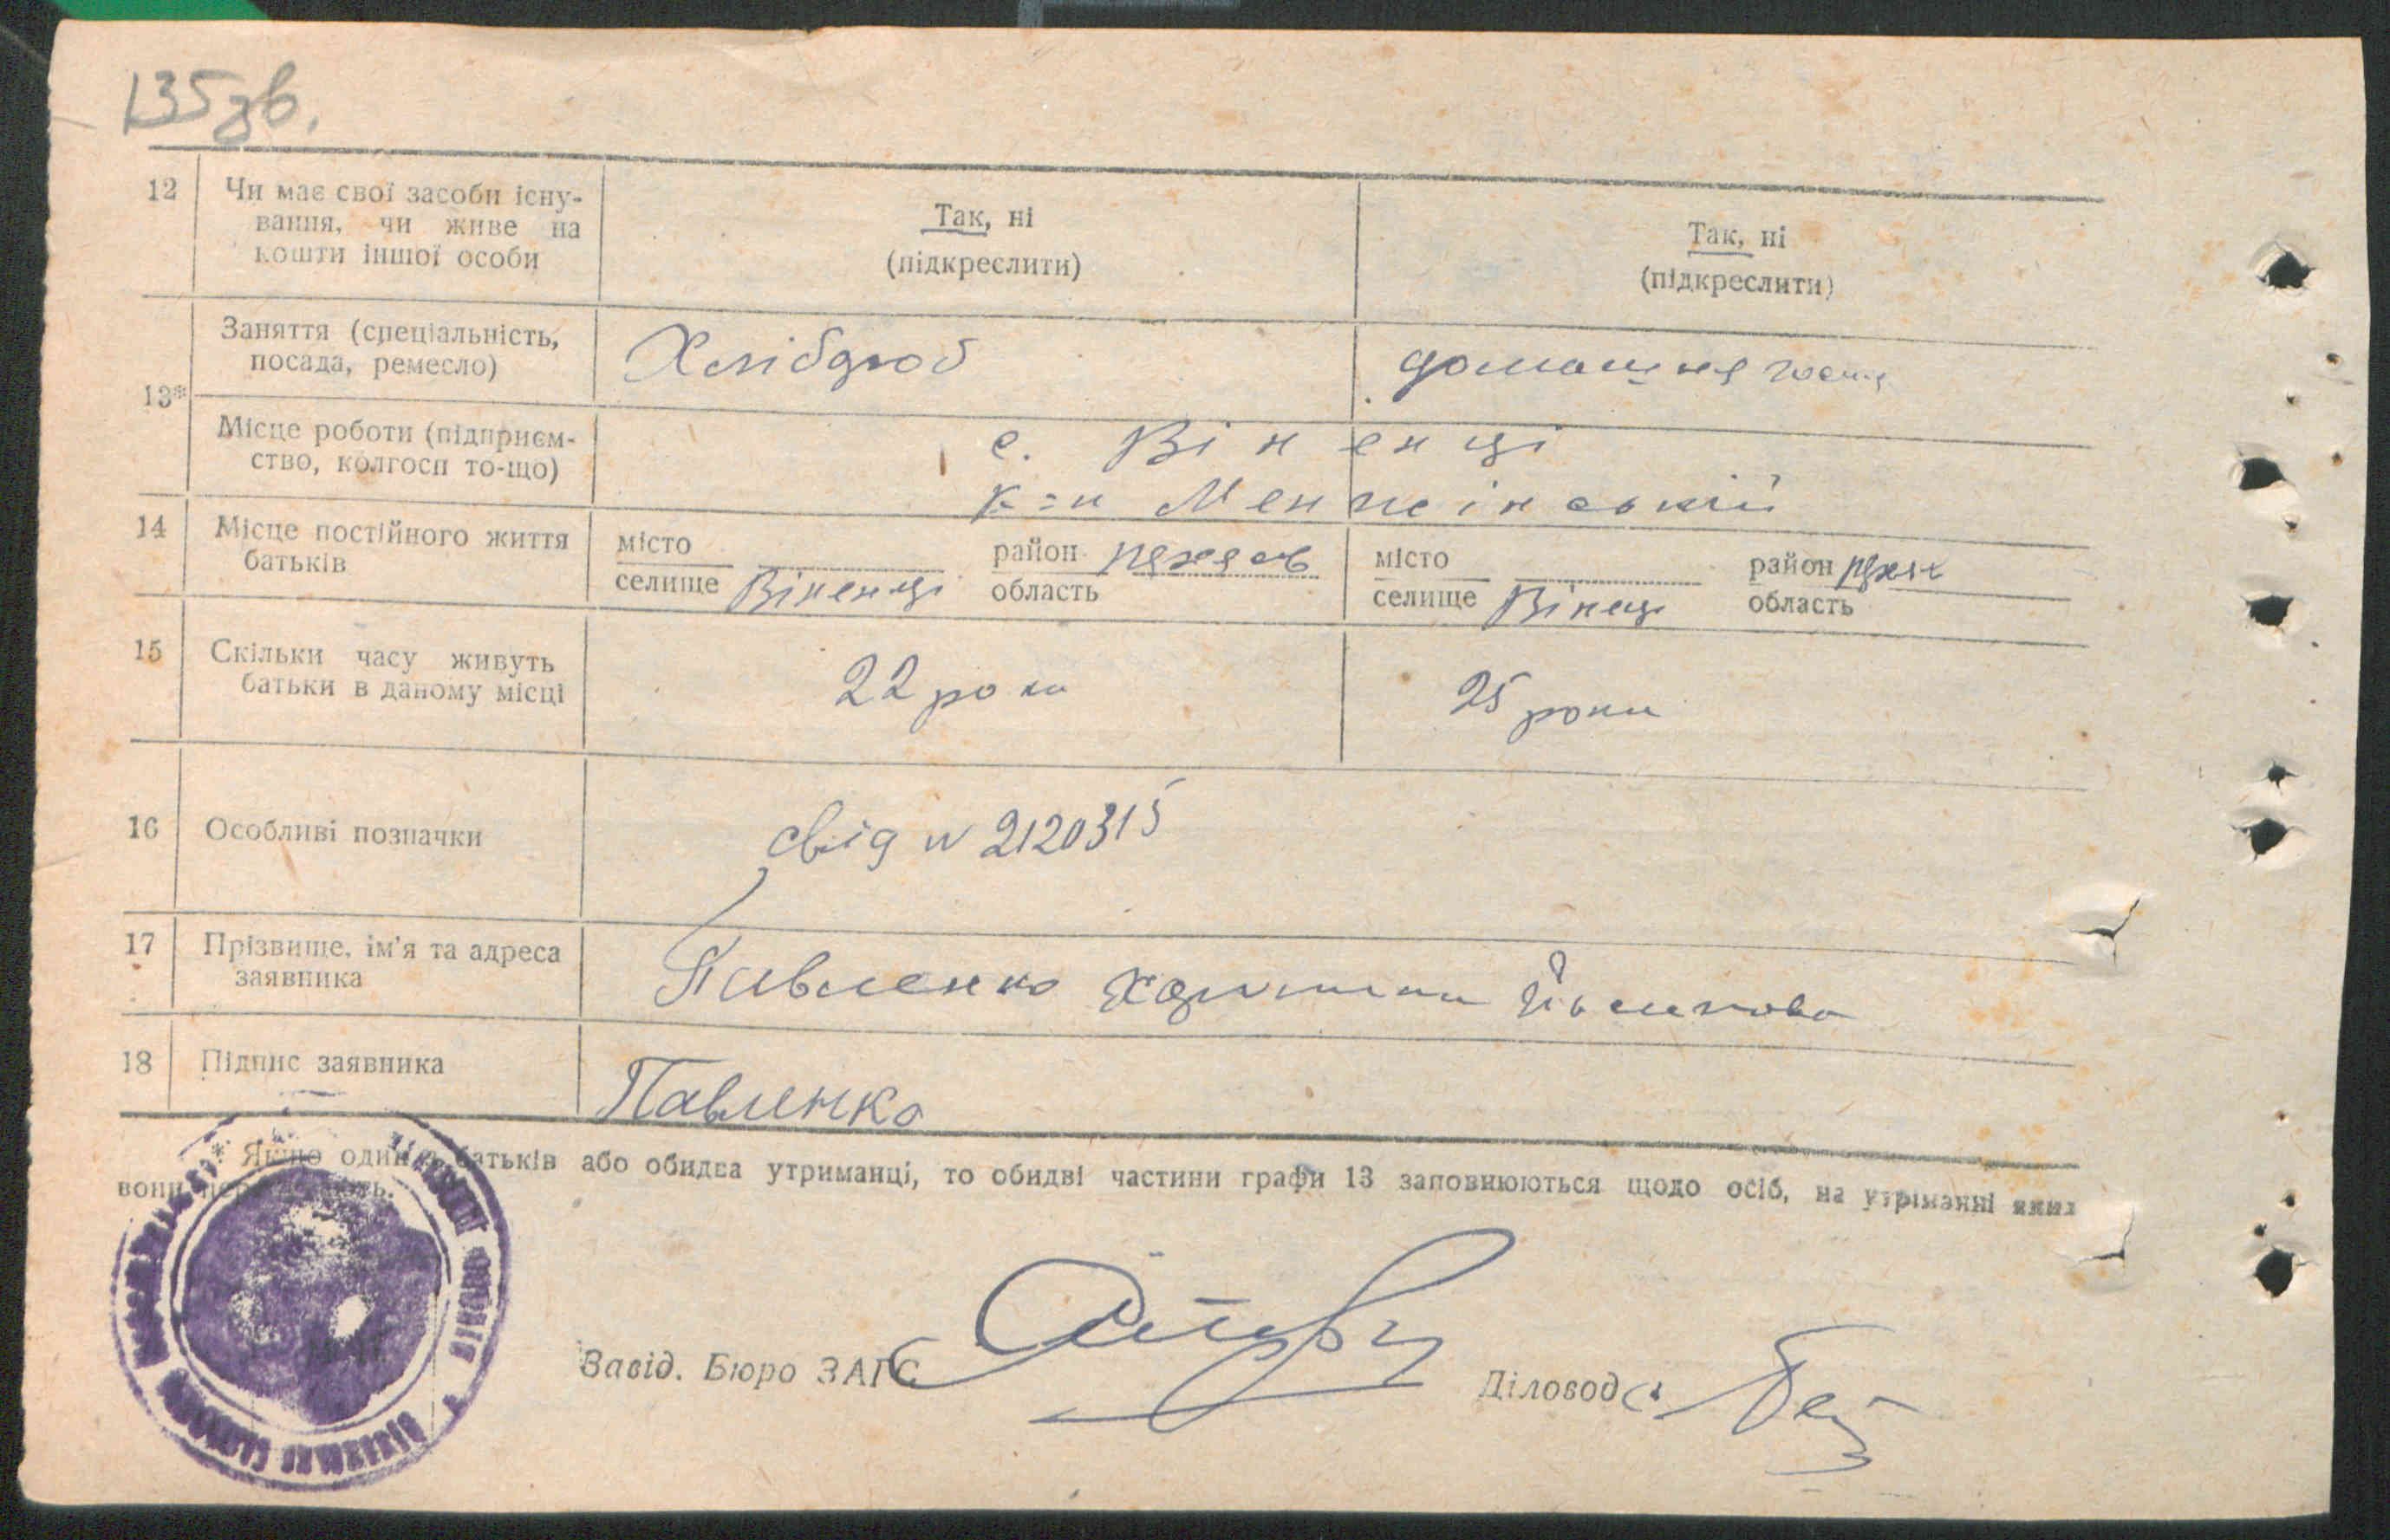 135зв.
12 Чи має свої засоби існу-
вання, чи живе на
кошти іншої особи
Так, ні
(підкреслити)
Так, ні
(підкреслити)
13*
Заняття (спеціальність,
посада, ремесло)
Хлібороб
домашня
Місце роботи (підприєм-
ство, колгосп то-що)
с. Віненці
к=п Менжінський
14 Місце постійного життя
батьків
місто
селище Віненці
район
область
місто
селище Вінеці
район
область
15 Скільки часу живуть
батьки в даному місці
22 роки
25 роки
16 Особливі позначки
свід № 2120315
17 Прізвище, ім'я та адреса
заявника
Павленко
18 Підпис заявника
Павленко
* Якщо один з батьків або обидва утриманці, то обидві частини графи 13 заповнюються щодо осіб, на утріманні яких
вони
Завід. Бюро ЗАГС
Діловод